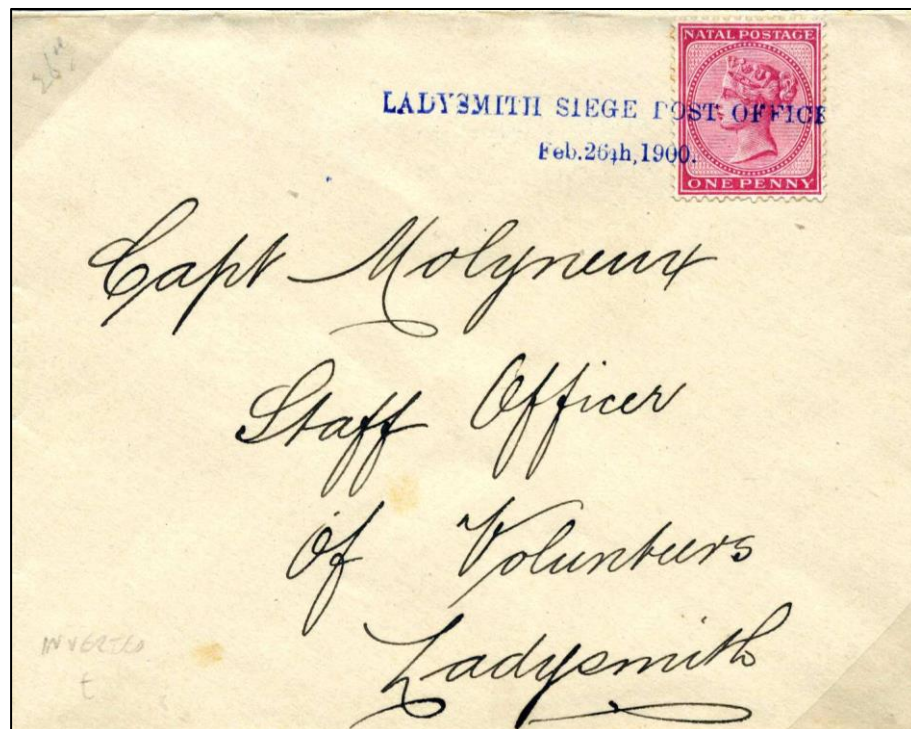 26th
NATAL POSTAGE
LADYSMITH SIEGE POST OFFICE
Feb.26th,1900.
ONE PENNY
Capt Molyneux
Staff Officer
Of Volunteers
Ladysmith
INVERTED
t